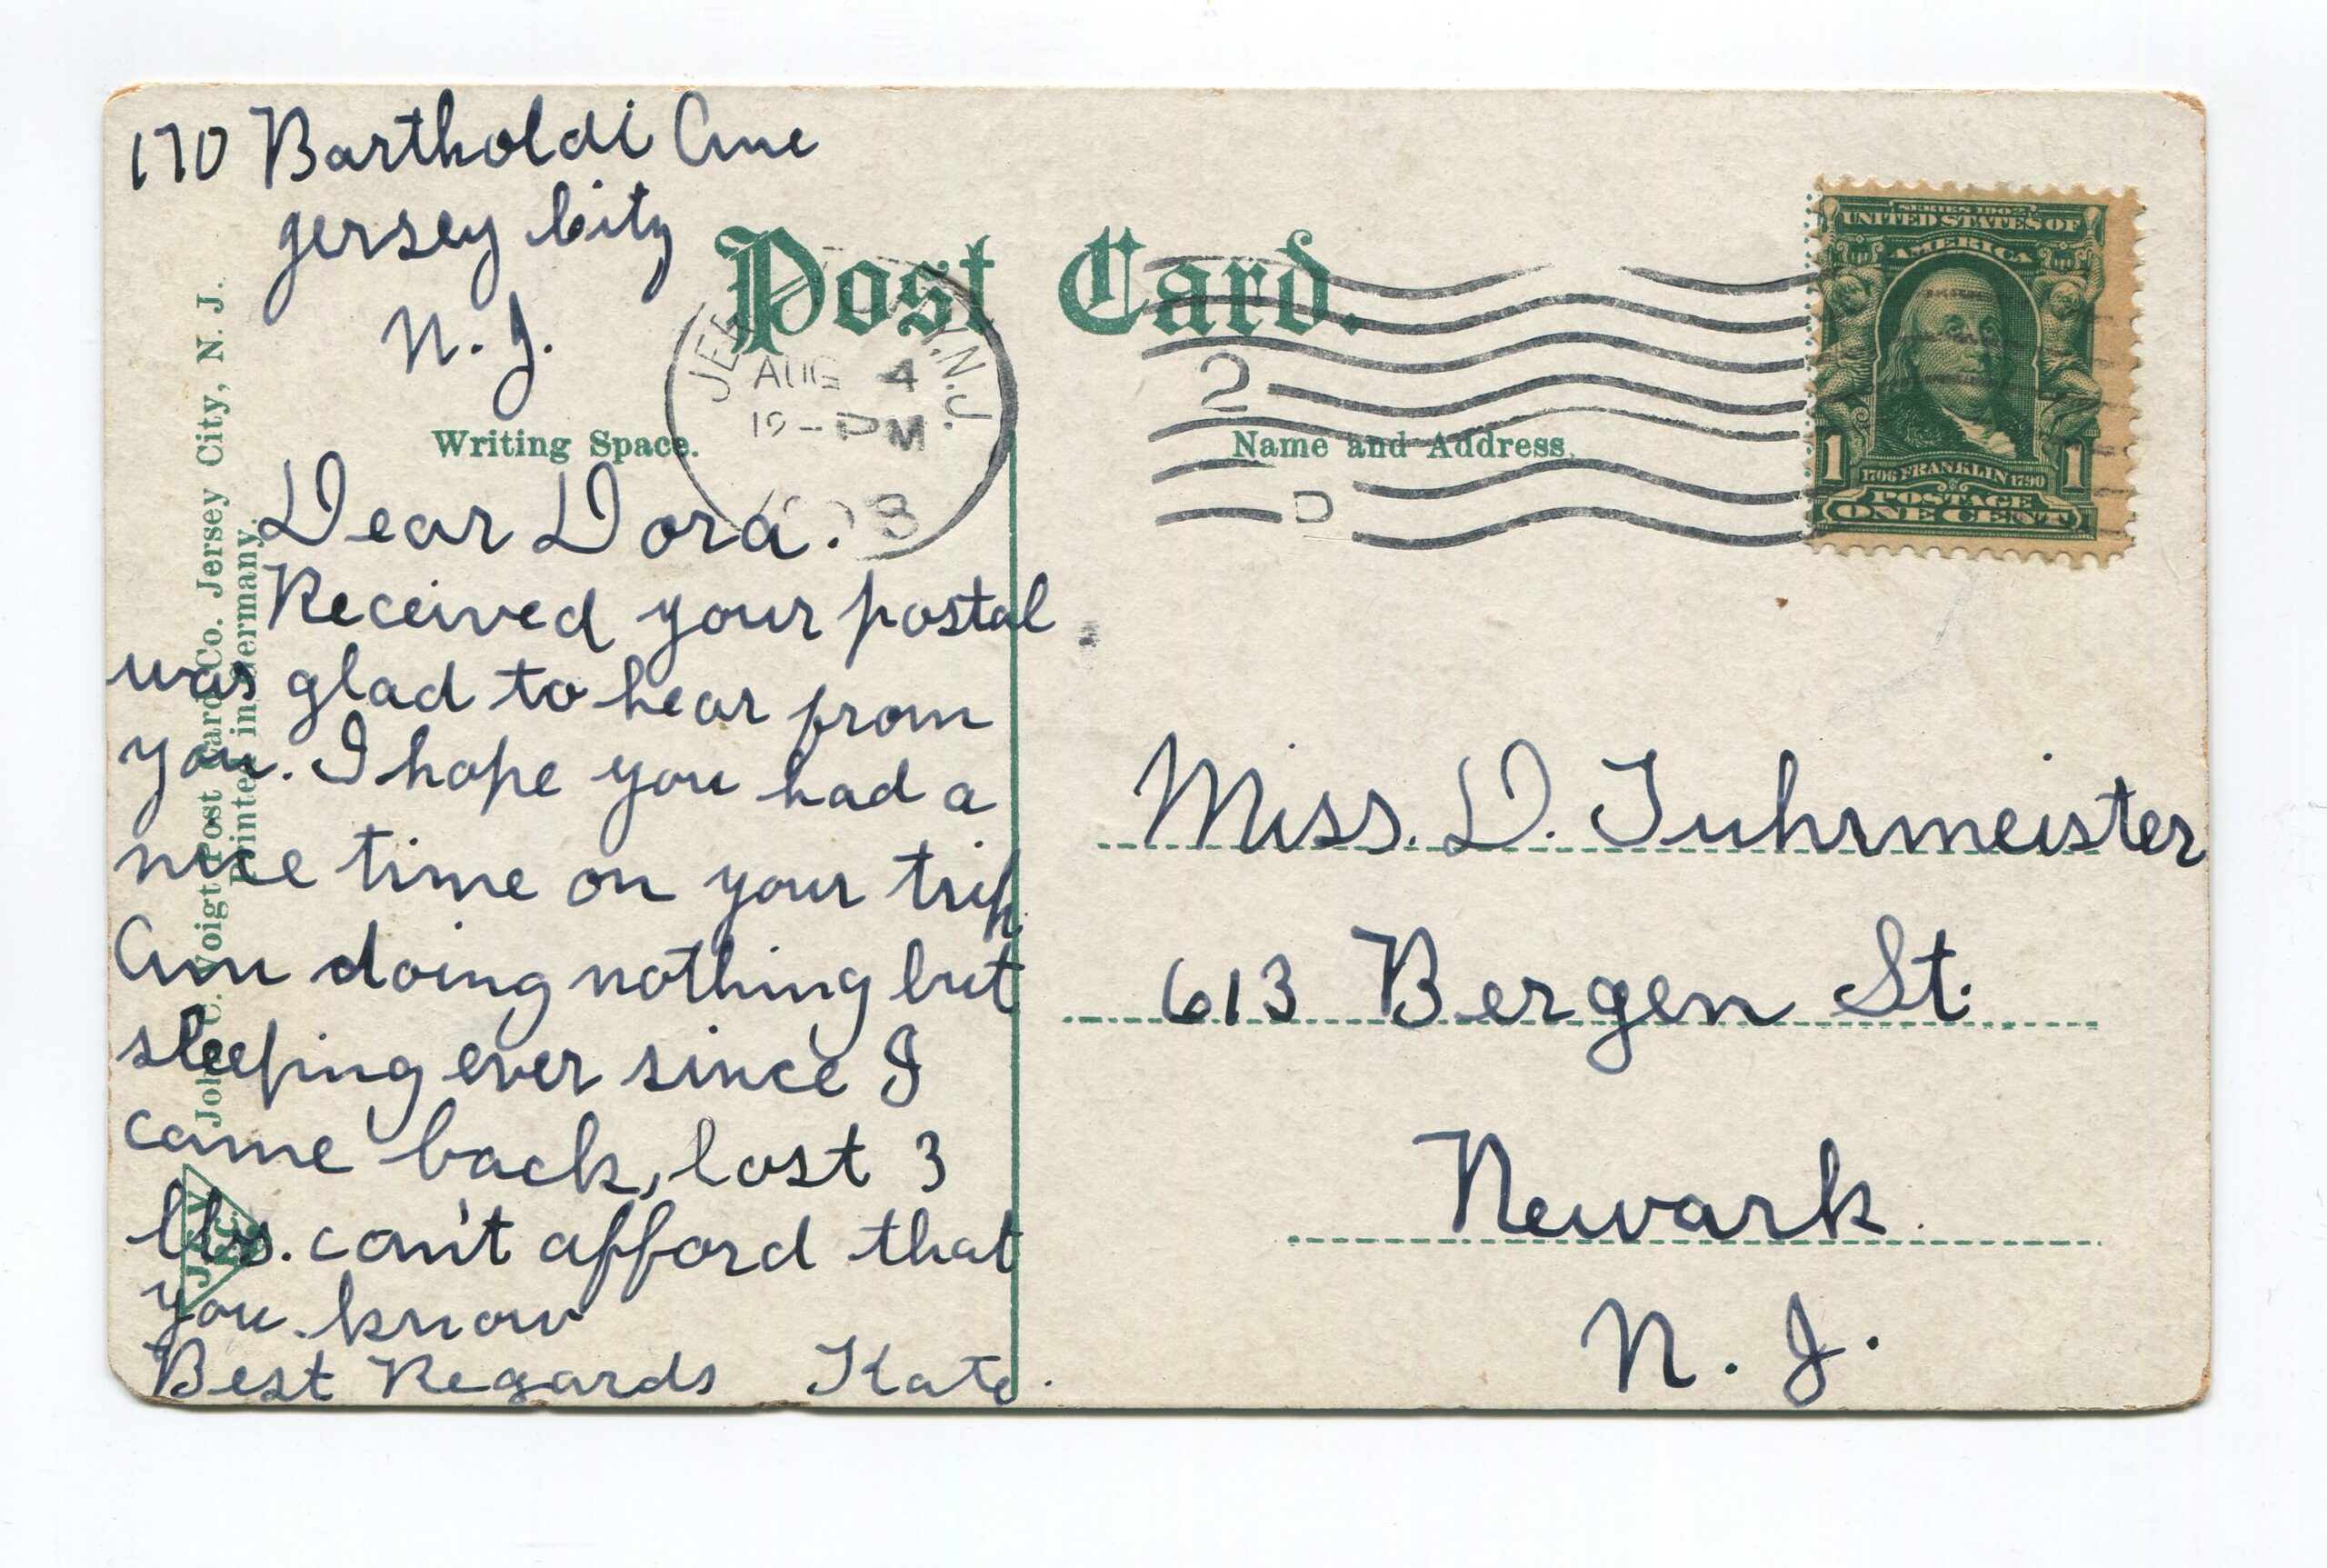 170 Bartholdi Ave
Jersey City
N. J.
Post Card.
Writing Space.
Name and Address.
AUG 4
PM
N.J.
2
D
SERIES 1902
UNITED STATES OF
AMERICA
1706 FRANKLIN 1790
1 1
POSTAGE
ONE CENT
Dear Dora.
Received your postal
was glad to hear from
you. I hope you had a
nice time on your trip.
Am doing nothing but
sleeping ever since I
came back, lost 3
lbs. can't afford that
you know
Best Regards Kate.
Miss. D. Fuhrmeister
613 Bergen St.
Newark
N. J.
Voigt Post Card Co. Jersey City, N. J.
Printed in Germany.